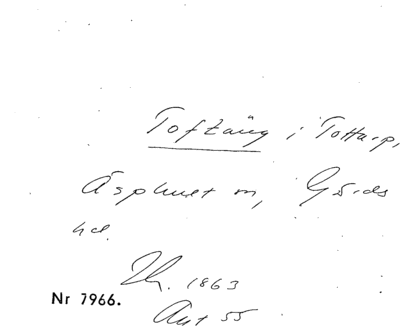 Toftäng i Tottarp,
Äsphult sn, Gärds
hd.
1863
Nr 7966.
Akt 55